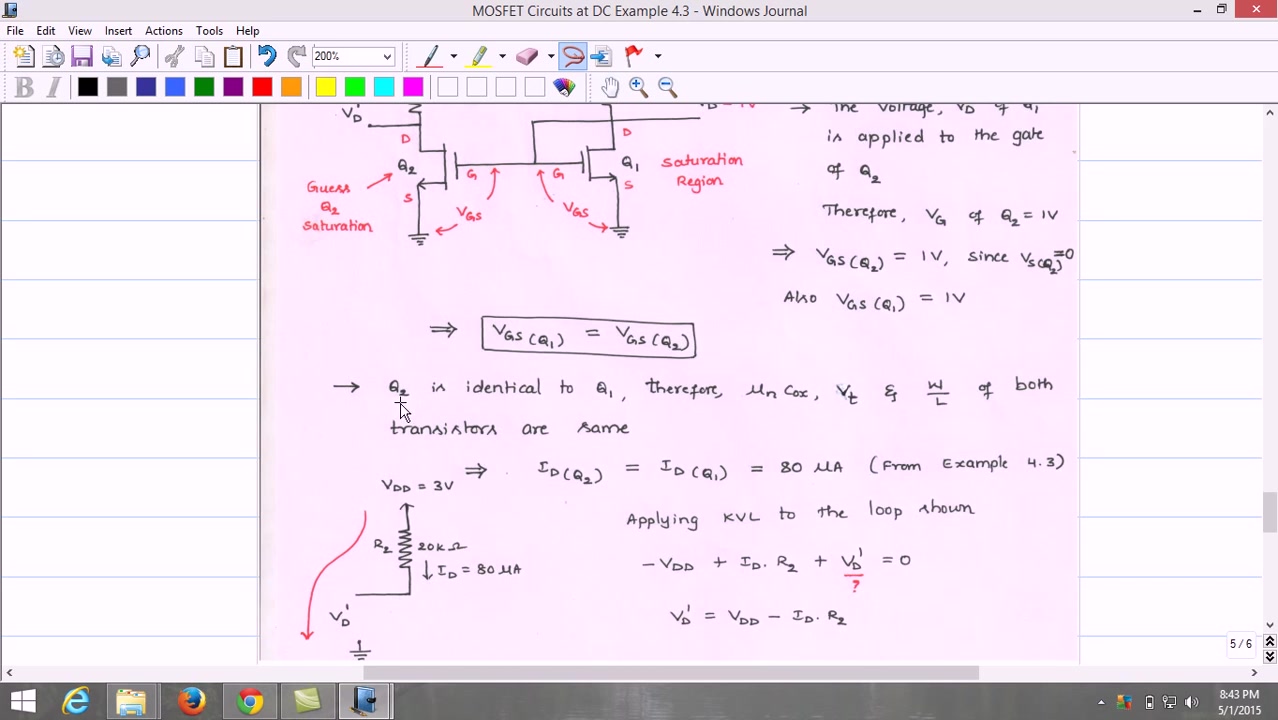 MOSFET Circuits at DC Example 4.3 - Windows Journal
File Edit View Insert Actions Tools Help
200%
B I
VD'
D
Q2
G
S
Guess
Q2
saturation
VGS
G
VGS
D
Q1
S
Saturation
Region
→ The voltage, VD of Q1
is applied to the gate
of Q2
Therefore, VG of Q2 = 1V
⇒ VGS(Q2) = 1V, since VS(Q2)=0
Also VGS(Q1) = 1V
⇒ VGS(Q1) = VGS(Q2)
→ Q2 is identical to Q1, therefore, μn Cox, Vt & W/L of both
transistors are same
⇒ ID(Q2) = ID(Q1) = 80 μA (From Example 4.3)
VDD = 3V
R2 20kΩ
↓ ID = 80 μA
VD'
Applying KVL to the loop shown
-VDD + ID. R2 + VD' = 0
?
VD' = VDD - ID. R2
5 / 6
8:43 PM
5/1/2015